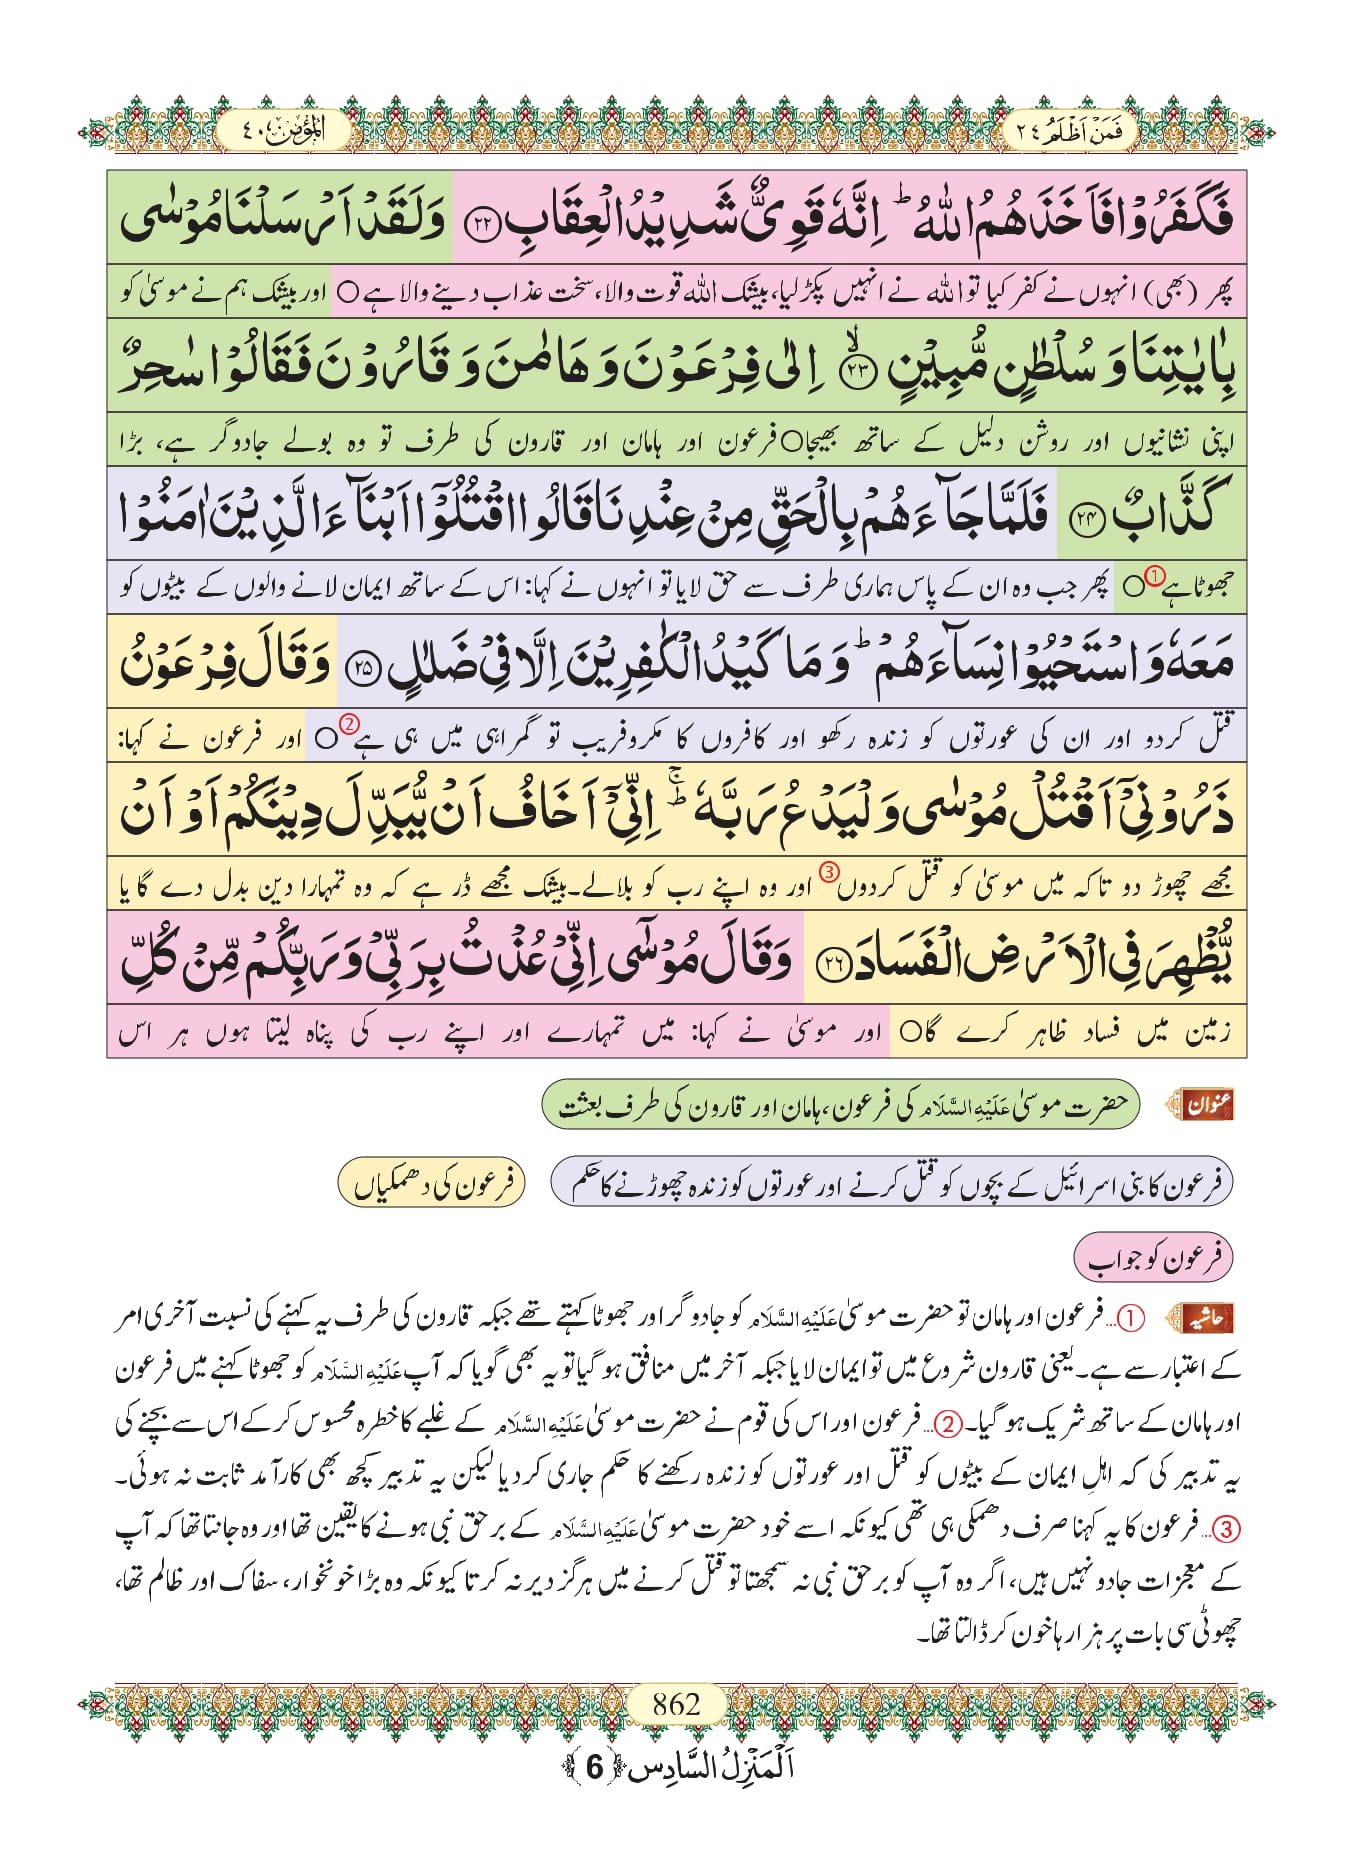 فَمَنْ اَظْلَمُ ٢٤
المؤمن ٤٠
فَكَفَرُوْا فَاَخَذَهُمُ اللّٰهُ ؕ اِنَّهٗ قَوِیٌّ شَدِیْدُ الْعِقَابِ ﴿۲۲﴾ وَ لَقَدْ اَرْسَلْنَا مُوْسٰی
پھر (بھی) انہوں نے کفر کیا تو اللہ نے انہیں پکڑ لیا، بیشک اللہ قوت والا، سخت عذاب دینے والا ہے ○ اور بیشک ہم نے موسیٰ کو
بِاٰیٰتِنَا وَ سُلْطٰنٍ مُّبِیْنٍ ﴿ۙ۲۳﴾ اِلٰی فِرْعَوْنَ وَ هَامٰنَ وَ قَارُوْنَ فَقَالُوْا سٰحِرٌ
اپنی نشانیوں اور روشن دلیل کے ساتھ بھیجا○ فرعون اور ہامان اور قارون کی طرف تو وہ بولے جادوگر ہے، بڑا
كَذَّابٌ ﴿۲۴﴾ فَلَمَّا جَآءَهُمْ بِالْحَقِّ مِنْ عِنْدِنَا قَالُوا اقْتُلُوْۤا اَبْنَآءَ الَّذِیْنَ اٰمَنُوْا
جھوٹا ہے① ○ پھر جب وہ ان کے پاس ہماری طرف سے حق لایا تو انہوں نے کہا: اس کے ساتھ ایمان لانے والوں کے بیٹوں کو
مَعَهٗ وَ اسْتَحْیُوْا نِسَآءَهُمْ ؕ وَ مَا كَیْدُ الْكٰفِرِیْنَ اِلَّا فِیْ ضَلٰلٍ ﴿۲۵﴾ وَ قَالَ فِرْعَوْنُ
قتل کردو اور ان کی عورتوں کو زندہ رکھو اور کافروں کا مکروفریب تو گمراہی میں ہی ہے② ○ اور فرعون نے کہا:
ذَرُوْنِیْۤ اَقْتُلْ مُوْسٰی وَ لْیَدْعُ رَبَّهٗ ۚؕ اِنِّیْۤ اَخَافُ اَنْ یُّبَدِّلَ دِیْنَكُمْ اَوْ اَنْ
مجھے چھوڑ دو تاکہ میں موسیٰ کو قتل کردوں③ اور وہ اپنے رب کو بلالے۔بیشک مجھے ڈر ہے کہ وہ تمہارا دین بدل دے گا یا
یُّظْهِرَ فِی الْاَرْضِ الْفَسَادَ ﴿۲۶﴾ وَ قَالَ مُوْسٰۤی اِنِّیْ عُذْتُ بِرَبِّیْ وَ رَبِّكُمْ مِّنْ كُلِّ
زمین میں فساد ظاہر کرے گا○ اور موسیٰ نے کہا: میں تمہارے اور اپنے رب کی پناہ لیتا ہوں ہر اس
عنوان حضرت موسیٰ عَلَیْهِ السَّلَام کی فرعون، ہامان اور قارون کی طرف بعثت
فرعون کا بنی اسرائیل کے بچوں کو قتل کرنے اور عورتوں کو زندہ چھوڑنے کا حکم
فرعون کی دھمکیاں
فرعون کو جواب
حاشیہ ①...فرعون اور ہامان تو حضرت موسیٰ عَلَیْهِ السَّلَام کو جادوگر اور جھوٹا کہتے تھے جبکہ قارون کی طرف یہ کہنے کی نسبت آخری امر
کے اعتبار سے ہے۔ یعنی قارون شروع میں تو ایمان لایا جبکہ آخر میں منافق ہوگیا تو یہ بھی گویا کہ آپ عَلَیْهِ السَّلَام کو جھوٹا کہنے میں فرعون
اور ہامان کے ساتھ شریک ہوگیا۔ ②...فرعون اور اس کی قوم نے حضرت موسیٰ عَلَیْهِ السَّلَام کے غلبے کا خطرہ محسوس کرکے اس سے بچنے کی
یہ تدبیر کی کہ اہلِ ایمان کے بیٹوں کو قتل اور عورتوں کو زندہ رکھنے کا حکم جاری کردیا لیکن یہ تدبیر کچھ بھی کارآمد ثابت نہ ہوئی۔
③...فرعون کا یہ کہنا صرف دھمکی ہی تھی کیونکہ اسے خود حضرت موسیٰ عَلَیْهِ السَّلَام کے برحق نبی ہونے کا یقین تھا اور وہ جانتا تھا کہ آپ
کے معجزات جادو نہیں ہیں، اگر وہ آپ کو برحق نبی نہ سمجھتا تو قتل کرنے میں ہرگز دیر نہ کرتا کیونکہ وہ بڑا خونخوار، سفاک اور ظالم تھا،
چھوٹی سی بات پر ہزارہا خون کر ڈالتا تھا۔
862
اَلْمَنْزِلُ السَّادِس ﴿6﴾